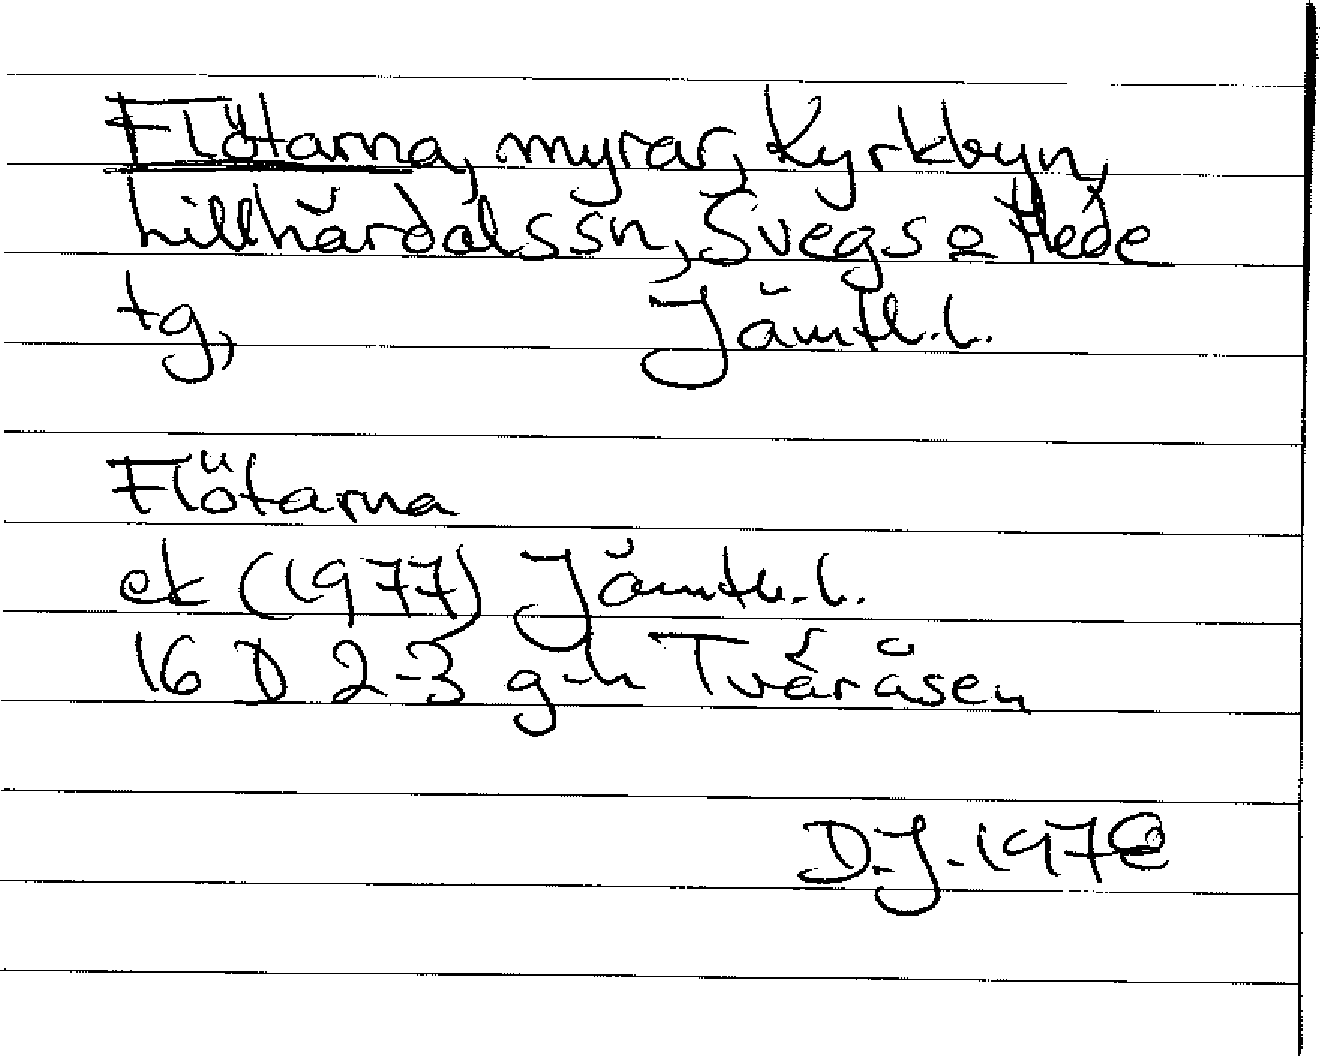 Flötarna, myrar, Kyrkbyn,
Lillhärdalssn, Svegs o Hede
tg, Jämtl.l.
Flötarna
ek (1977) Jämtl.l.
16 D 2-3 g-h Tväråsen
D.J.